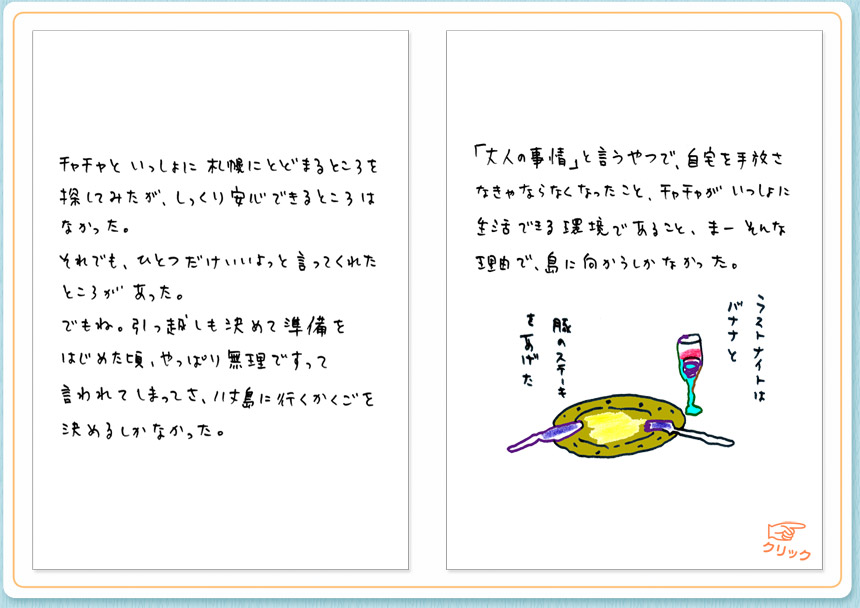 チャチャと いっしょに 札幌にとどまるところを
探してみたが、しっくり安心できるところは
なかった。
それでも、ひとつだけいいよっと言ってくれた
ところがあった。
でもね。引っ越しも決めて準備を
はじめた頃、やっぱり無理ですって
言われてしまってさ、八丈島に行くかくごを
決めるしかなかった。
「大人の事情」と言うやつで、自宅を手放さ
なきゃならなくなったこと、チャチャが いっしょに
生活できる環境であること、まー そんな
理由で、島に向かうしかなかった。
ラストナイトは
バナナと
豚のステーキ
をあげた
クリック